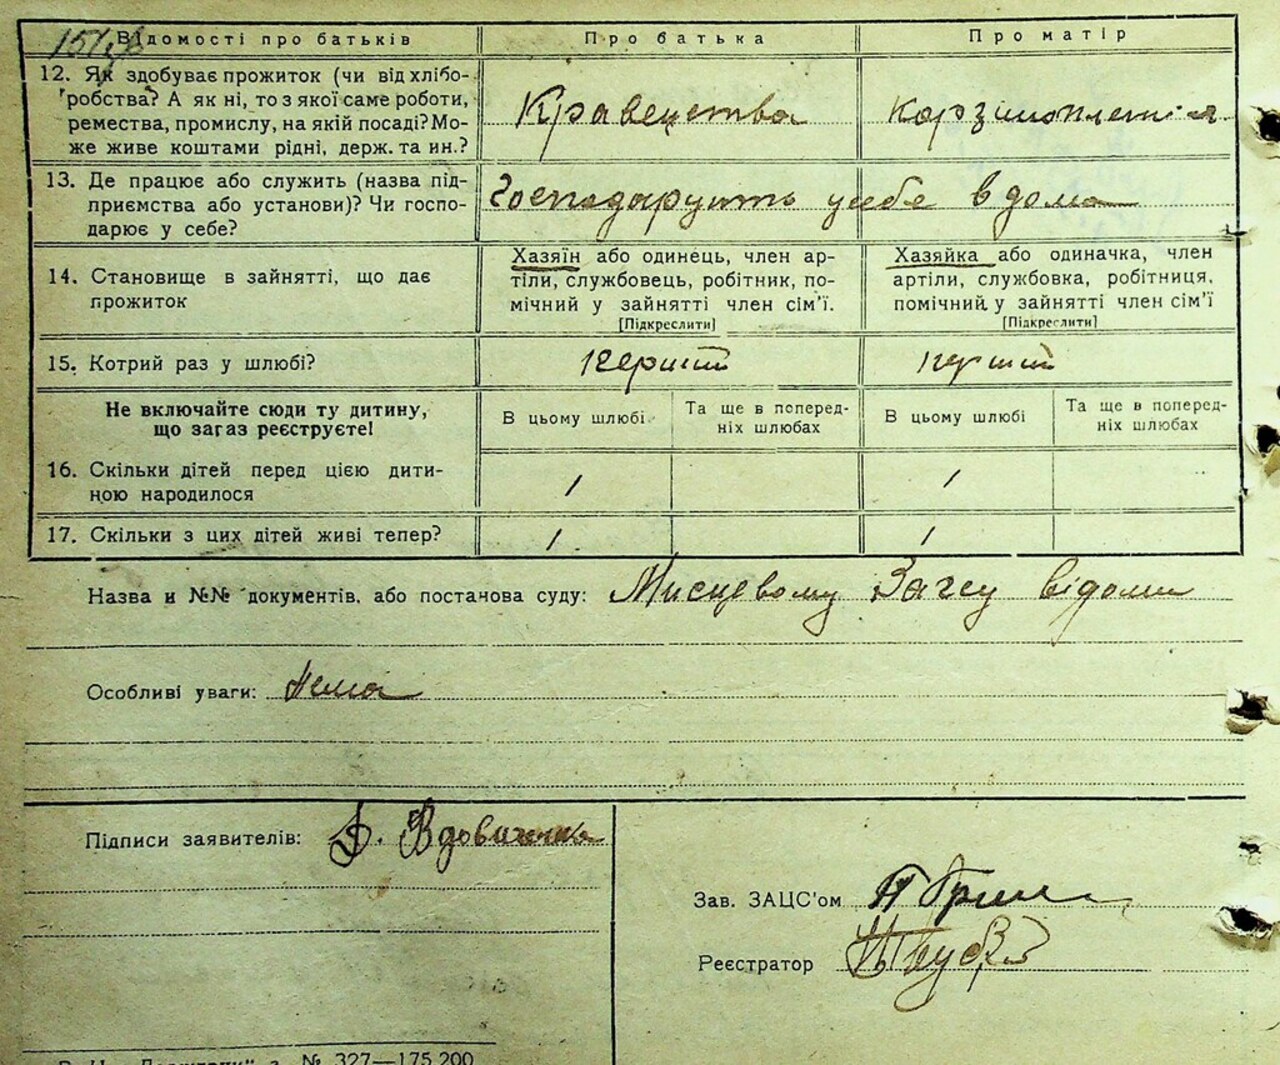 Відомості про батьків Про батька Про матір
12. Як здобуває прожиток (чи від хлібо-
робства? А як ні, то з якої саме роботи,
ремества, промислу, на якій посаді? Мо-
же живе коштами рідні, держ. та ин.?
Кравецтва
корзиноплетіня
13. Де працює або служить (назва під-
приємства або установи)? Чи госпо-
дарює у себе?
Господарують у себе в дома
14. Становище в зайнятті, що дає
прожиток
Хазяїн або одинець, член ар-
тіли, службовець, робітник, по-
мічний у зайнятті член сім'ї.
[Підкреслити]
Хазяйка або одиначка, член
артіли, службовка, робітниця,
помічний у зайнятті член сім'ї
[Підкреслити]
15. Котрий раз у шлюбі? перший перший
Не включайте сюди ту дитину,
що зараз реєструєте!
В цьому шлюбі
Та ще в поперед-
ніх шлюбах
В цьому шлюбі
Та ще в поперед-
ніх шлюбах
16. Скільки дітей перед цією дити-
ною народилося
1 1
17. Скільки з цих дітей живі тепер? 1 1
Назва и №№ документів, або постанова суду: Мисцевому Загсу відоми
Особливі уваги: нема
Підписи заявителів: Вдовиченко
Зав. ЗАЦС'ом
Реєстратор
№ 327—175.200